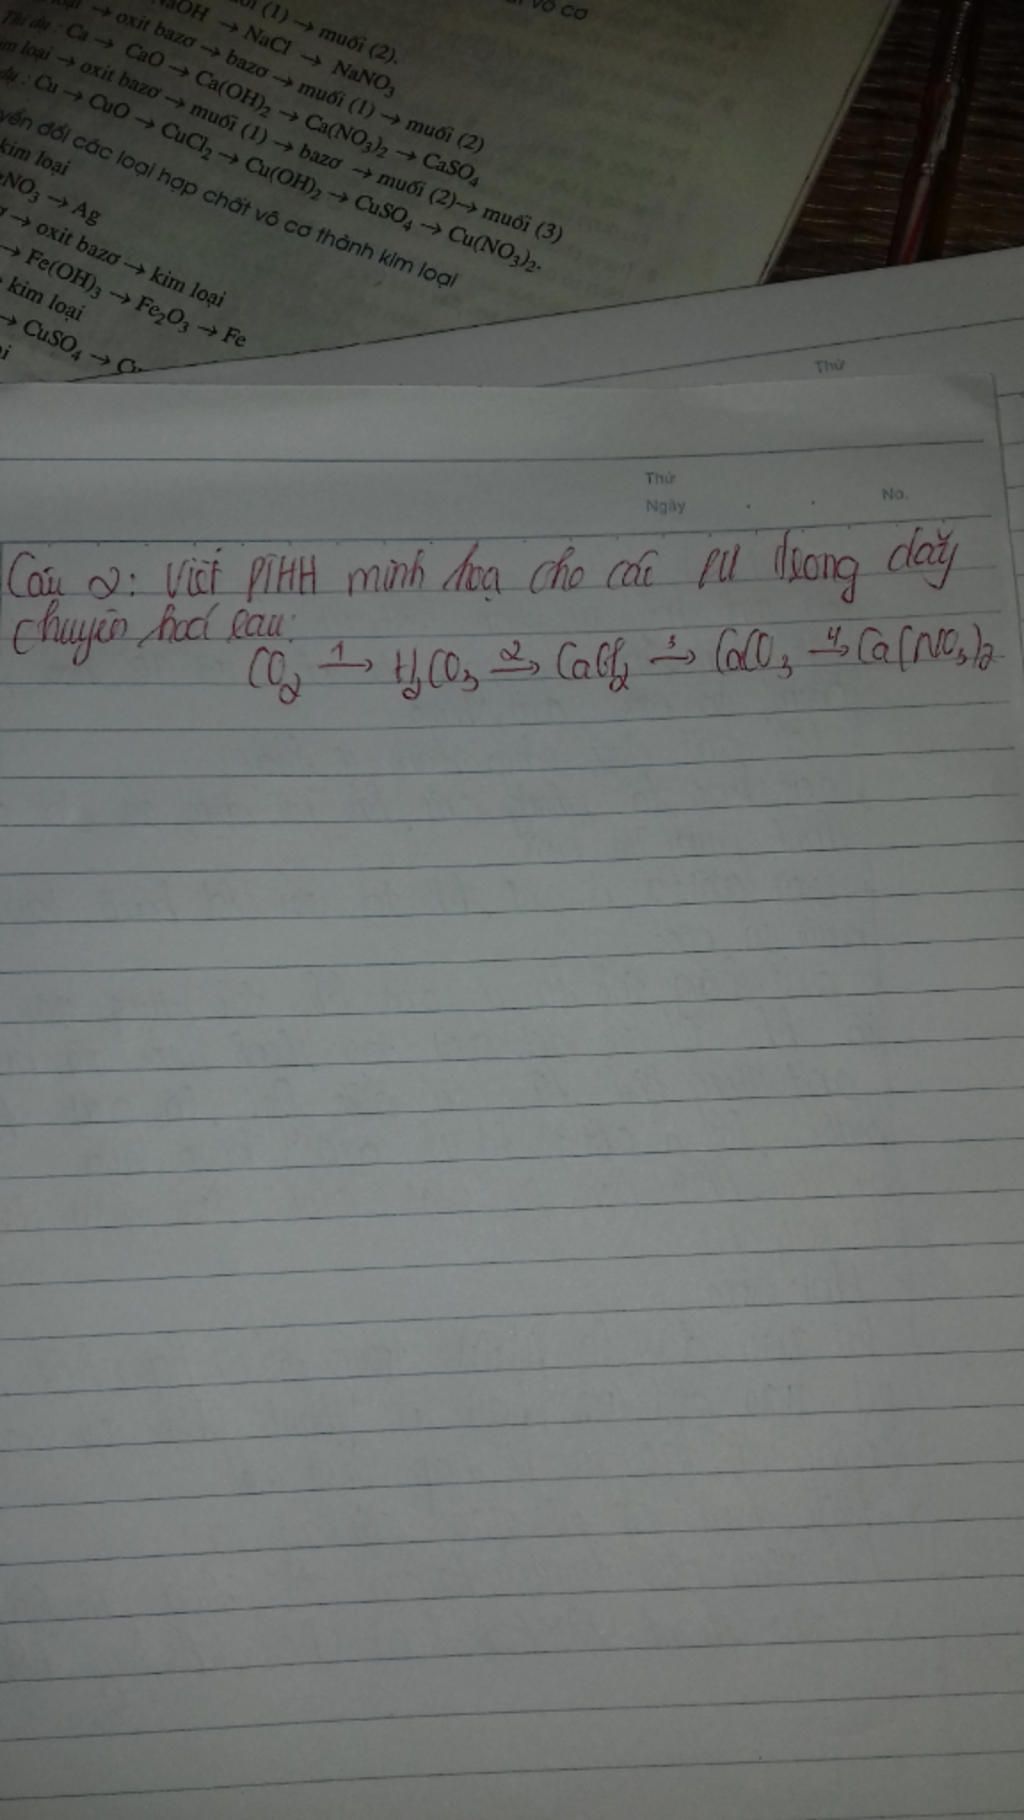 vô cơ
ối (1) → muối (2).
NaOH → NaCl → NaNO₃
→ oxit bazơ → bazơ → muối (1) → muối (2)
Thí dụ : Ca → CaO → Ca(OH)₂ → Ca(NO₃)₂ → CaSO₄
im loại → oxit bazơ → muối (1) → bazơ → muối (2) → muối (3)
dụ : Cu → CuO → CuCl₂ → Cu(OH)₂ → CuSO₄ → Cu(NO₃)₂.
yển đổi các loại hợp chất vô cơ thành kim loại
kim loại
NO₃ → Ag
→ oxit bazơ → kim loại
→ Fe(OH)₃ → Fe₂O₃ → Fe
kim loại
→ CuSO₄ → Cu
Thứ
Thứ
Ngày No.
Câu 2: Viết PTHH minh hoạ cho các PƯ trong dãy
chuyển hoá sau:
CO₂ 1→ H₂CO₃ 2→ CaCl₂ 3→ CaCO₃ 4→ Ca(NO₃)₂